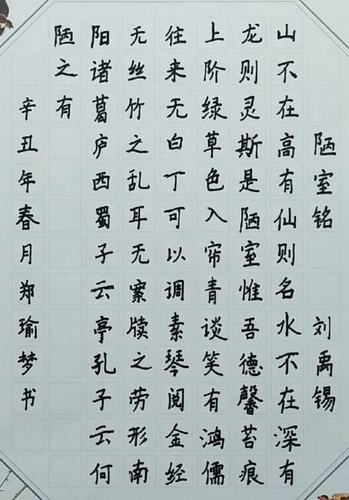 陋室铭 刘禹锡
山不在高有仙则名水不在深有
龙则灵斯是陋室惟吾德馨苔痕
上阶绿草色入帘青谈笑有鸿儒
往来无白丁可以调素琴阅金经
无丝竹之乱耳无案牍之劳形南
阳诸葛庐西蜀子云亭孔子云何
陋之有
辛丑年春月郑瑜梦书